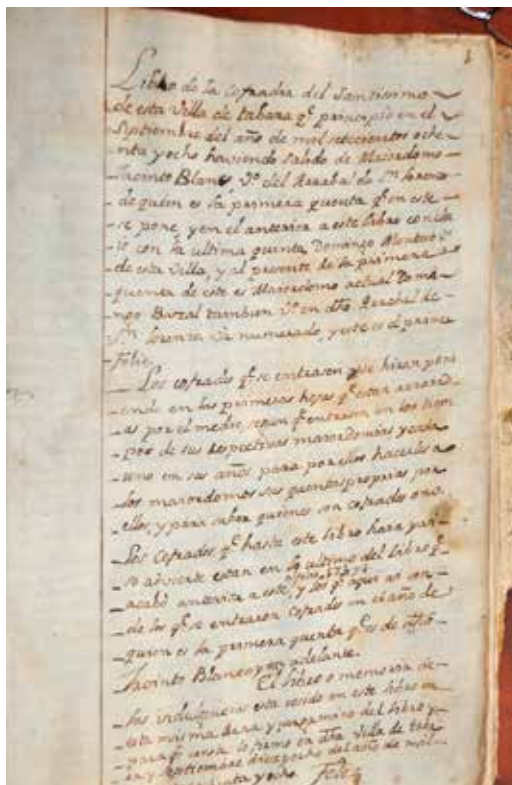 1
Libro de la Cofradia del Santissimo
de esta Villa de tabara qe principio en el
Septiembre del año de mil setecientos oche
nta y ocho haviendo salido de Maiordomo
Jacinto Blanco, Vo del Arrabal de Sn Lorenzo
de quien es la primera quenta qe en este
se pone, y en el anterior a este libro concl
io con la ultima quenta Domingo
de esta Villa, y al presente de la primera
quenta de este es Maiordomo actual Domi
ngo tambien Vo en dho Arrabal de
Sn Lorenzo va numerado, y este es el primer
folio
Los cofrades qe se entrasen se hiran poni
endo en las primeras hojas qe estan
as por el medio, segun qe entrasen en los tiem
pos de sus respectivas maiordomias y cada
uno en sus años para por ellos hacerles a
los maiordomos sus quentas proprias por
ellos, y para saber quienes son cofrades o no.
Los Cofrades qe hasta este libro hara
so adviente estan en lo ultimo del libro qe
acabó anterior a este, y los qe aqui
de los qe se entraron Cofrades en el año de
quien es la primera quenta qe es de dho
Jacinto Blanco y en adelante.
El libro o memoria de
las indulgencias esta cosido en este libro en
esta misma llana y pergamino del libro y
para qe conste lo firmo en dha Villa de taba
ra y Septiembre diez y ocho del año de mil
ta y ocho